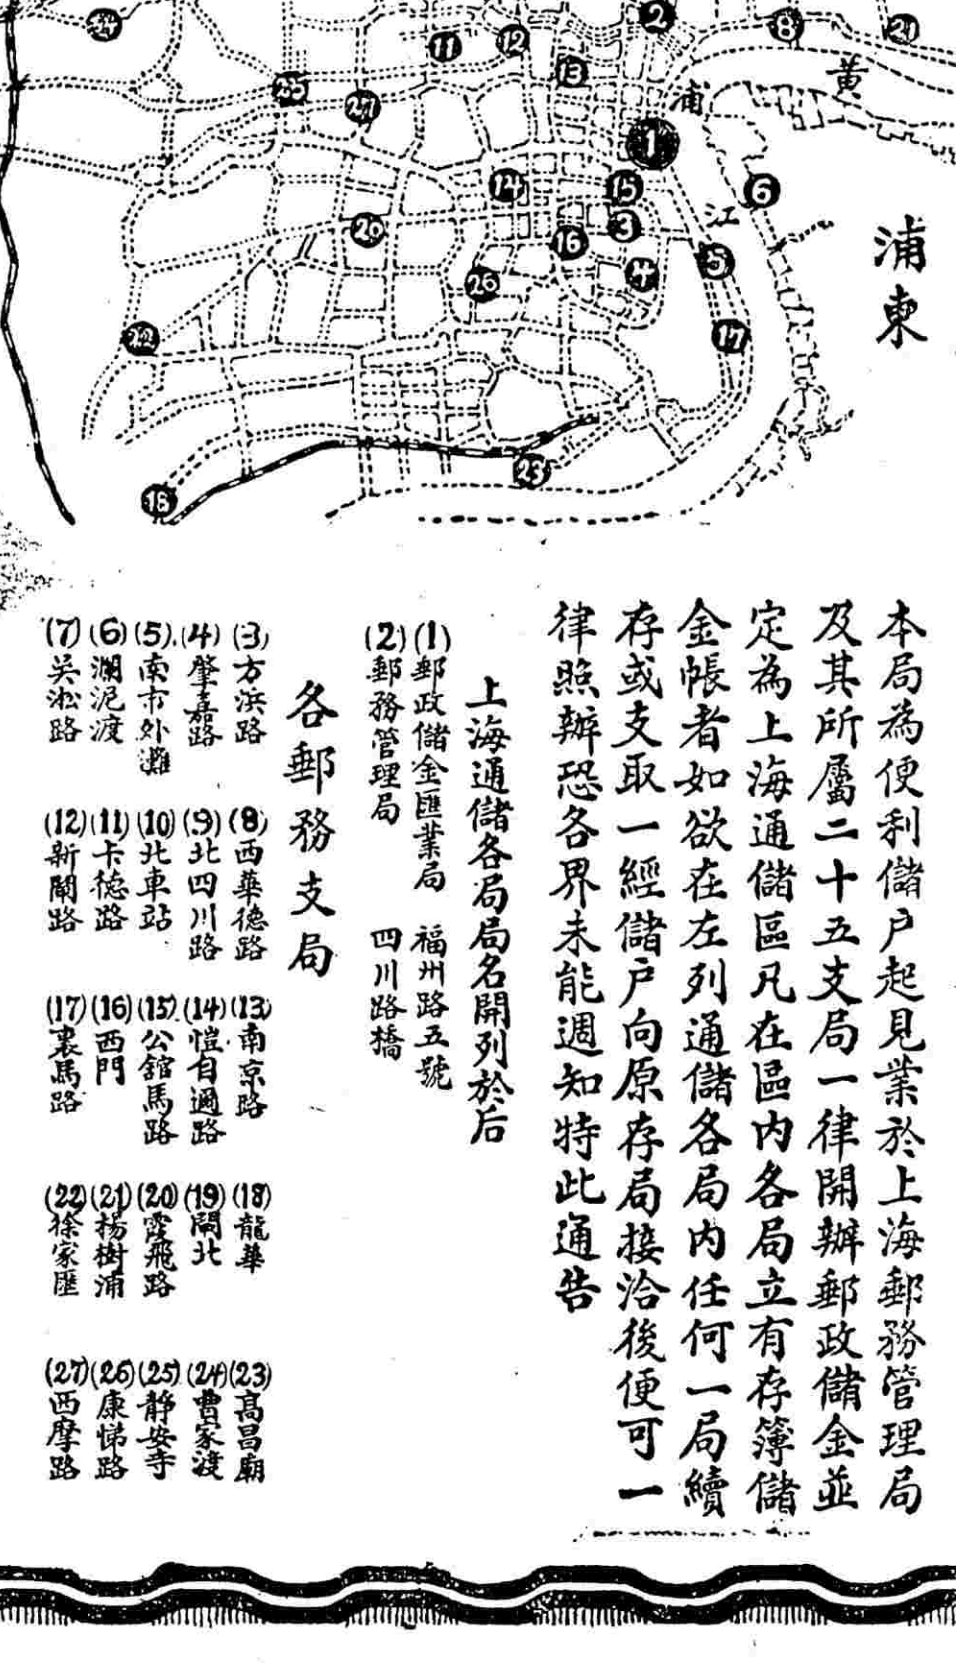 黄
浦
江
浦東
24
11
12
2
8
21
25
27
13
1
14
15
6
20
16
3
26
4
5
22
17
23
18
本局為便利儲户起見業於上海郵務管理局
及其所屬二十五支局一律開辦郵政儲金並
定為上海通儲區凡在區内各局立有存簿儲
金帳者如欲在左列通儲各局内任何一局續
存或支取一經儲户向原存局接洽後便可一
律照辦恐各界未能週知特此通告
上海通儲各局局名開列於后
(1)郵政儲金匯業局 福州路五號
(2)郵務管理局 四川路橋
各郵務支局
(3)方浜路
(4)肇嘉路
(5)南市外灘
(6)瀾泥渡
(7)吴淞路
(8)西華德路
(9)北四川路
(10)北車站
(11)卡德路
(12)新閘路
(13)南京路
(14)愷自邇路
(15)公館馬路
(16)西門
(17)裏馬路
(18)龍華
(19)閘北
(20)霞飛路
(21)楊樹浦
(22)徐家匯
(23)高昌廟
(24)曹家渡
(25)静安寺
(26)康悌路
(27)西摩路